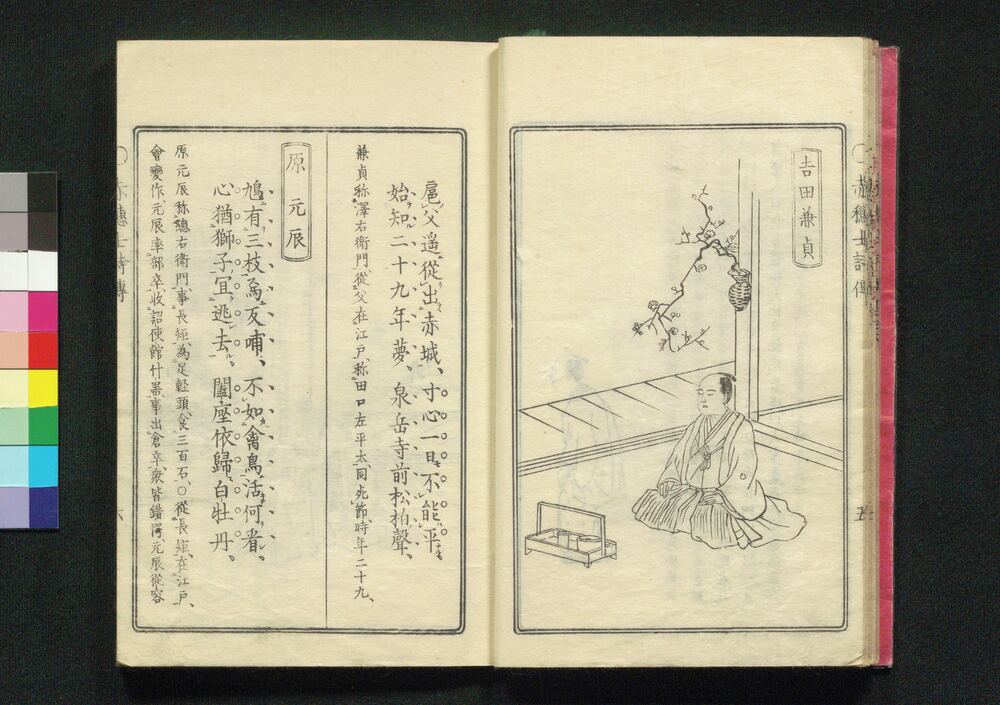 吉田兼貞
扈父遥從出赤城、寸心一日不能平
始知二十九年夢、泉岳寺前松柏聲、
兼貞称澤右衛門、從父在江戸、称田口左平太、同死節、時年二十九、
原元辰
鳩有三枝為反哺、不如禽鳥活何看、
心猶獅子冝逃去、闔座依歸白牡丹、
原元辰称總右衛門、事長矩、為足軽頭、食三百石、○從長矩、在江戸、
會変作、元辰率部卒收詔使館什器、事出倉卒衆皆錯愕元辰從容
赤穂士詩傳
五
六